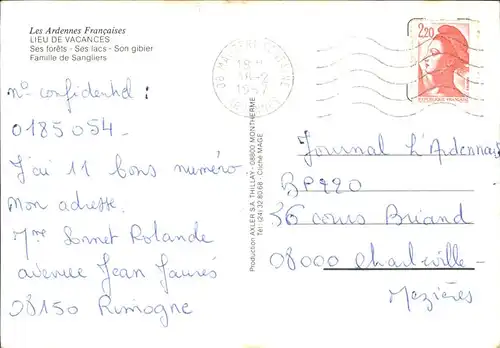 Les Ardennes Françaises
LIEU DE VACANCES
Ses forêts - Ses lacs - Son gibier
Famille de Sangliers
n° confidentiel :
0185054-
J'ai 11 bons numéro
Mon adresse
Mme Sonnet Rolande
avenue Jean Jaurès
08150 Rimogne
Production AXLER S.A. THILLAY - 08800 MONTHERME
Tél. : (24) 32.80.68 - Cliché MAGE
2,20
REPUBLIQUE FRANÇAISE
Journal L'Ardennais
BP220
36 cours Briand
08000 Charleville-
Mezières